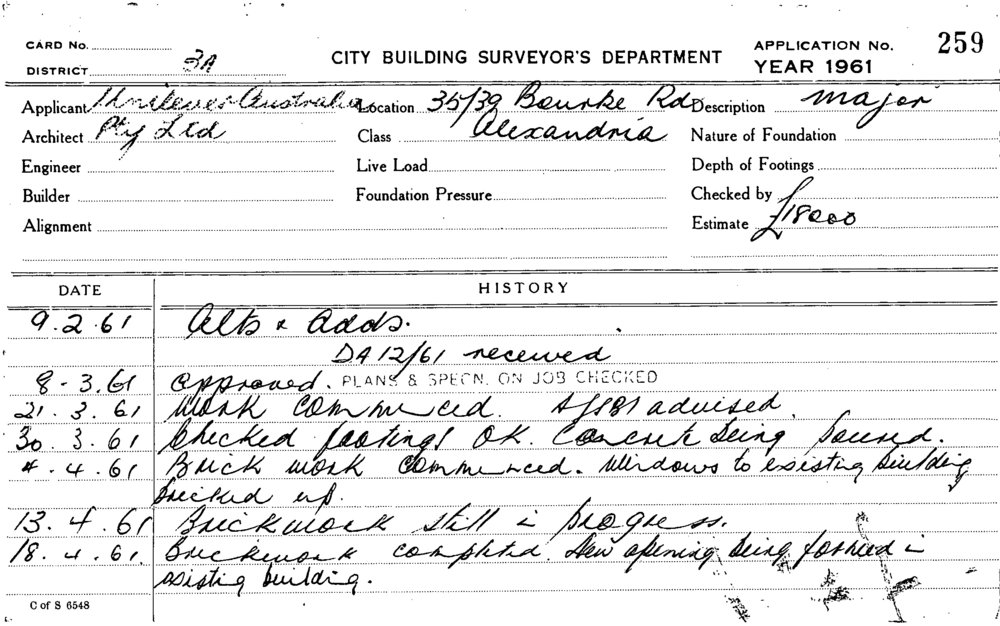 CARD No.
DISTRICT 3A
CITY BUILDING SURVEYOR'S DEPARTMENT
APPLICATION No. 259
YEAR 1961
Applicant Unilever Australia Location 35/39 Bourke Rd Description major
Architect Pty Ltd Class Alexandria Nature of Foundation
Engineer Live Load Depth of Footings
Builder Foundation Pressure Checked by
Alignment Estimate £18000
DATE HISTORY
9.2.61 Alts & Adds.
DA 12/61 received
8-3.61 approved. PLANS & SPECN. ON JOB CHECKED
21.3.61 Work commenced. advised.
30.3.61 Checked footings OK. Concrete being poured.
4.4.61 Brick work commenced. Windows to existing building
bricked up.
13.4.61 Brickwork still in progress.
18.4.61. Brickwork completed. New opening being formed in
existing building.
C of S 6548